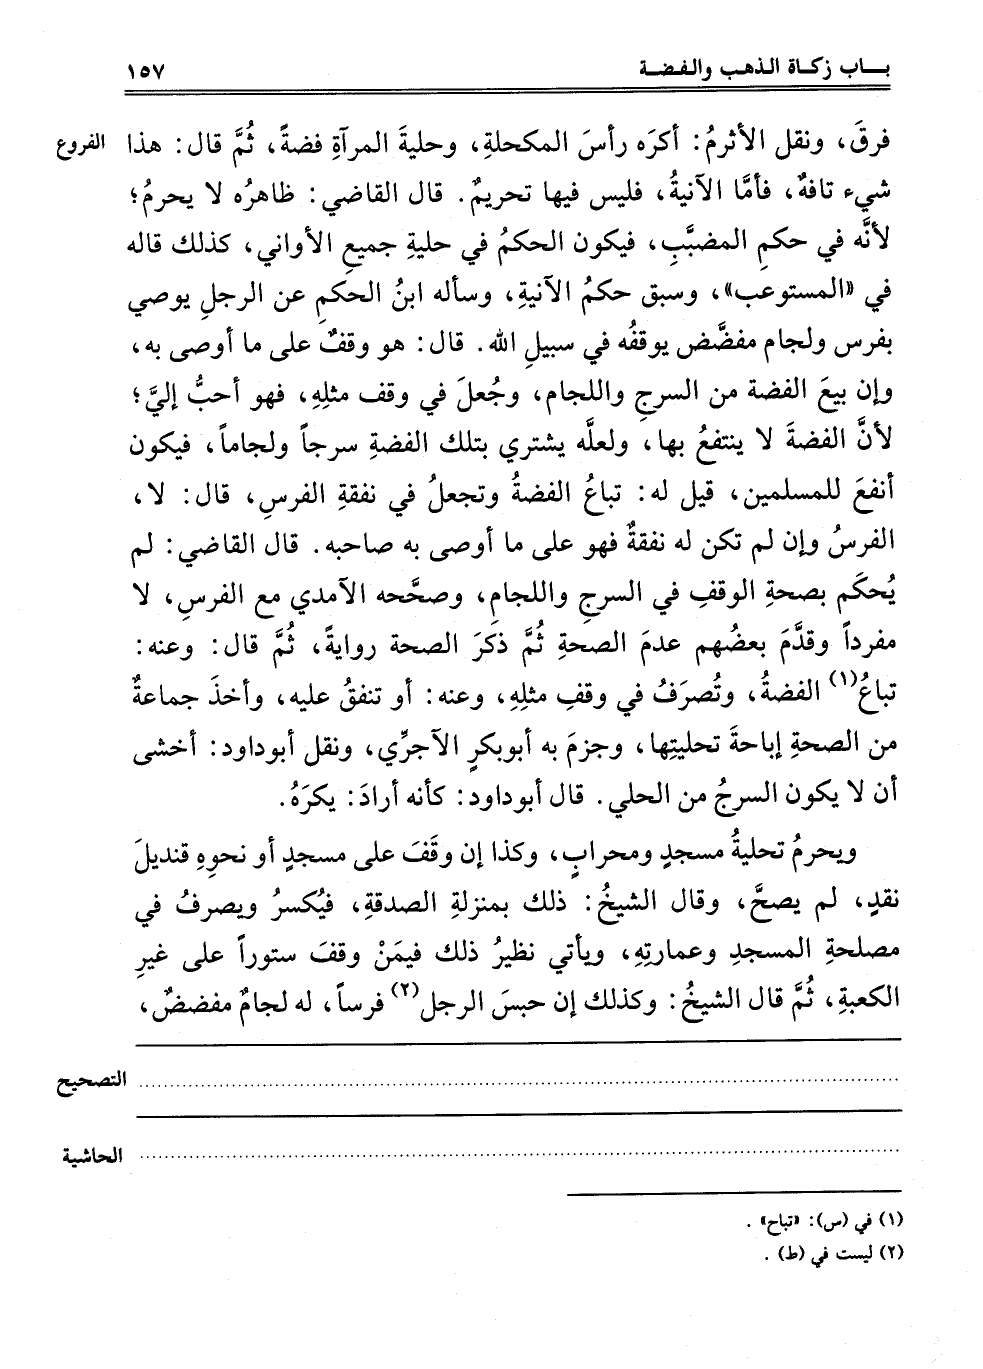 بـــاب زكـاة الـذهـب والـفـضـة
١٥٧
فرقَ، ونقل الأثرمُ: أكرَه رأسَ المكحلةِ، وحليةَ المرآةِ فضةً، ثُمَّ قال: هذا
الفروع
شيء تافهٌ، فأمَّا الآنيةُ، فليس فيها تحريمٌ. قال القاضي: ظاهرُه لا يحرمُ؛
لأنَّه في حكمِ المضبَّبِ، فيكون الحكمُ في حليةِ جميعِ الأواني، كذلك قاله
في «المستوعب»، وسبق حكمُ الآنيةِ، وسأله ابنُ الحكمِ عن الرجلِ يوصي
بفرس ولجام مفضَّض يوقفُه في سبيلِ الله. قال: هو وقفٌ على ما أوصى به،
وإن بيعَ الفضة من السرجِ واللجامِ، وجُعلَ في وقف مثلِهِ، فهو أحبُّ إليَّ؛
لأنَّ الفضةَ لا ينتفعُ بها، ولعلَّه يشتري بتلك الفضةِ سرجاً ولجاماً، فيكون
أنفعَ للمسلمين، قيل له: تباعُ الفضةُ وتجعلُ في نفقةِ الفرسِ، قال: لا،
الفرسُ وإن لم تكن له نفقةٌ فهو على ما أوصى به صاحبه. قال القاضي: لم
يُحكَم بصحةِ الوقفِ في السرجِ واللجامِ، وصحَّحه الآمدي مع الفرسِ، لا
مفرداً وقدَّمَ بعضُهم عدمَ الصحةِ ثُمَّ ذكَرَ الصحة روايةً، ثُمَّ قال: وعنه:
تباعُ(١) الفضةُ، وتُصرَفُ في وقفِ مثلِهِ، وعنه: أو تنفقُ عليه، وأخذَ جماعةٌ
من الصحةِ إباحةَ تحليتِها، وجزمَ به أبوبكرٍ الآجرِّي، ونقل أبوداود: أخشى
أن لا يكون السرجُ من الحلي. قال أبوداود: كأنه أرادَ: يكرَهُ.
ويحرمُ تحليةُ مسجدٍ ومحرابٍ، وكذا إن وقَفَ على مسجدٍ أو نحوِهِ قنديلَ
نقدٍ، لم يصحَّ، وقال الشيخُ: ذلك بمنزلةِ الصدقةِ، فيُكسرُ ويصرفُ في
مصلحةِ المسجدِ وعمارتِهِ، ويأتي نظيرُ ذلك فيمَنْ وقفَ ستوراً على غيرِ
الكعبةِ، ثُمَّ قال الشيخُ: وكذلك إن حبسَ الرجل(٢) فرساً، له لجامٌ مفضضٌ،
التصحيح
الحاشية
(١) في (س): «تباح» .
(٢) ليست في (ط) .